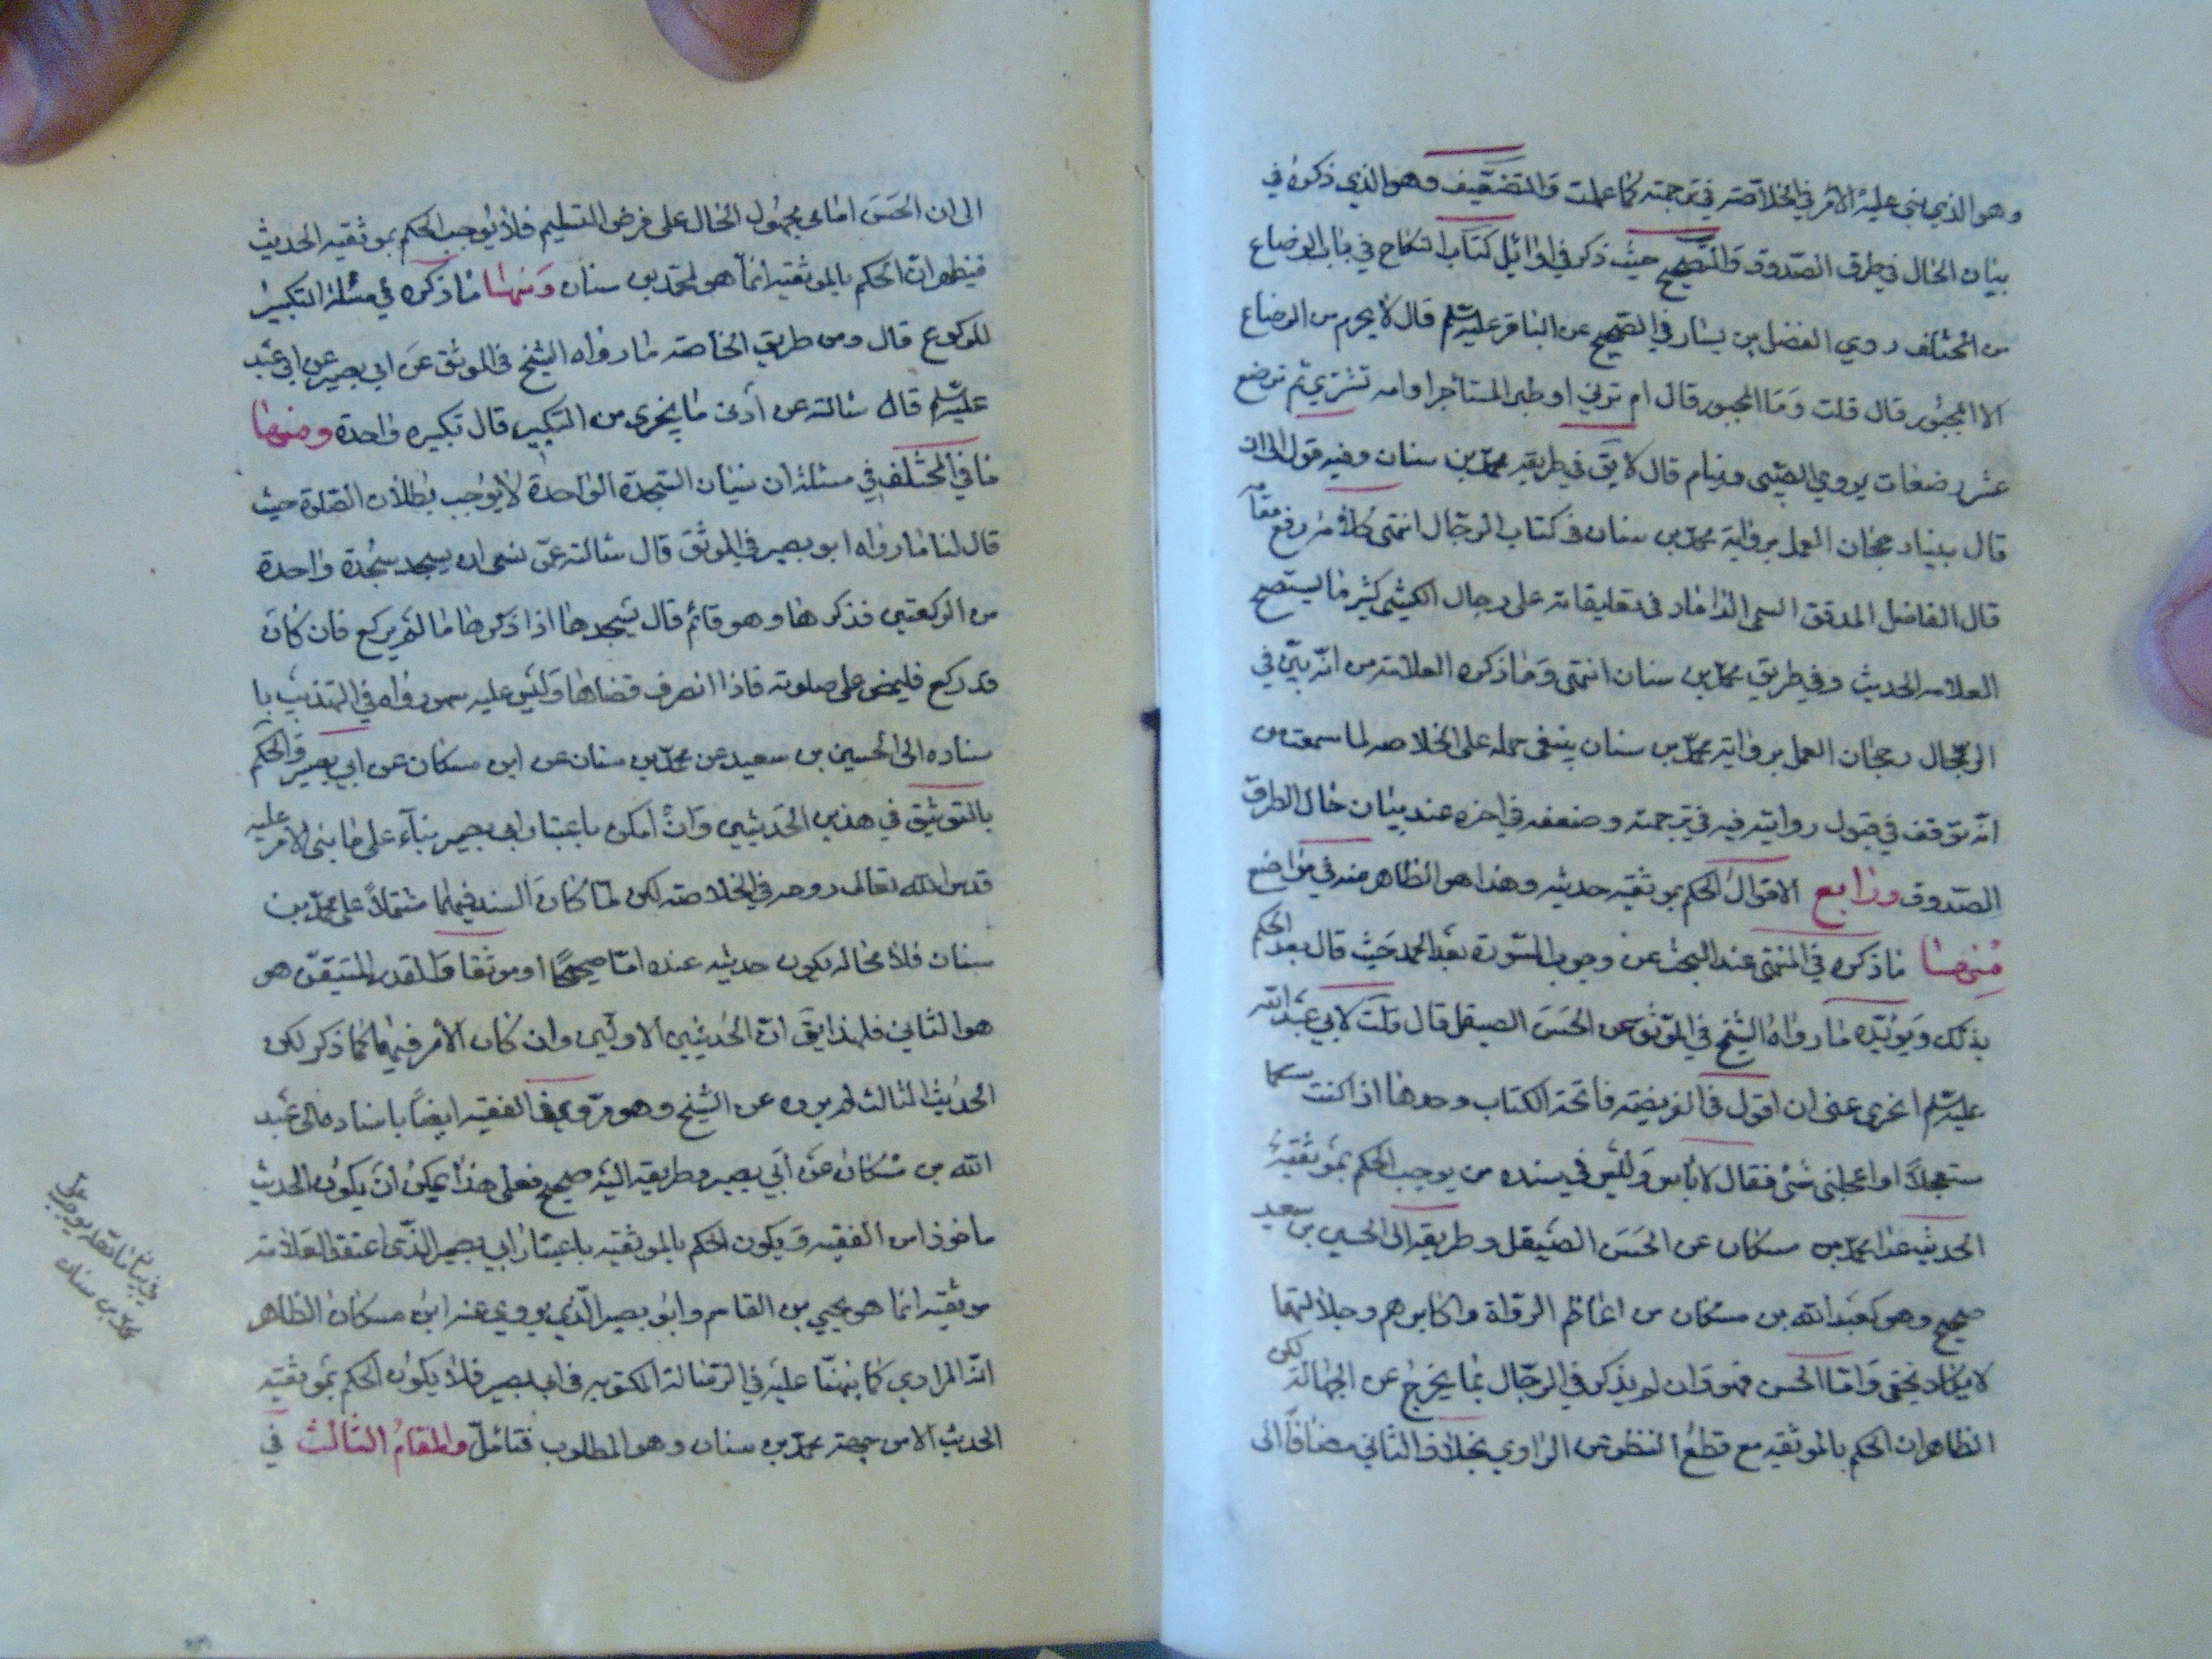 وهو الذي بنى عليه الامر في الخلاصة في ترجمته كما علمت والتضعيف وهو الذي ذكره في
بيان الحال في طرق الصدوق والتصحيح حيث ذكر في اوائل كتاب النكاح في باب الرضاع
من المختلف روي الفضل بن يسار في الصحيح عن الباقر عليه السلم قال لا يحرم من الرضاع
الا المجبور قال قلت وما المجبور قال ام تربي او ظئر تستأجر او امه تشتري ثم ترضع
عشر رضعات يروي الصبي وينام قال لا يق في طريقه محمد بن سنان وفيه قول لانا
قال بينا رجحان العمل برواية محمد بن سنان في كتاب الرجال انتهى كلامه رفع مقامه
قال الفاضل المدقق السمي الداماد في تعليقاته على رجال الكشي كثيرا ما يستصح
العلامه الحديث وفي طريقه محمد بن سنان انتهى وما ذكره العلامة من انه بين في
الرجال رجحان العمل برواية محمد بن سنان ينبغي حمله على الخلاصه لما سمعت من
انه توقف في قبول روايته فيه في ترجمته وضعفه في اخره عند بيان حال الطرق
الصدوق ورابع الاقوال الحكم بموثقية حديثه وهذا هو الظاهر منه في مواضع
منها ما ذكره في المنتهى عند البحث عن وجوب السورة بعد الحمد حيث قال بعد الحكم
بذلك ويؤيده ما رواه الشيخ في الموثق عن الحسن الصيقل قال قلت لابي عبد الله
عليه السلم ايجزي عني ان اقول في الفريضة فاتحة الكتاب وحدها اذا كنت
مستعجلا او اعجلني شئ فقال لا بأس وليس في سنده من يوجب الحكم بموثقية
الحديث عدا محمد بن مسكان عن الحسن الصيقل وطريقه الى الحسين بن سعيد
صحيح وهو كعبد الله بن مسكان من اعاظم الرواة واكابرهم وجلالتهما
لا يكاد يخفى واما الحسن فهو وان لم يذكر في الرجال بما يخرج عن الجهالة لكن
الظاهر ان الحكم بالموثقيه مع قطع النظر عن الراوي بخلاف الثاني مضافا الى
الى ان الحسن امامي مجهول الحال على فرض التسليم فلا يوجب الحكم بموثقيه الحديث
فيظهر ان الحكم بالموثقيه انما هو لمحمد بن سنان ومنها ما ذكره في مسئلة التكبير
للركوع قال ومن طريق الخاصه ما رواه الشيخ في الموثق عن ابي بصير عن ابي عبد
عليه السلم قال سالته عن أدنى ما يجزي من التكبير قال تكبيره واحدة ومنها
ما في المختلف في مسئلة ان نسيان السجدة الواحدة لا يوجب بطلان الصلوة حيث
قال لنا ما رواه ابو بصير في الموثق قال سالته عمن نسي ان يسجد سجدة واحدة
من الركعتين فذكرها وهو قائم قال يسجدها اذا ذكرها ما لم يركع فان كان
قد ركع فليمض على صلوته فاذا انصرف قضاها وليس عليه سهو رواه في التهذيب با
سناده الى الحسين بن سعيد عن محمد بن سنان عن ابن مسكان عن ابي بصير والحكم
بالتوثيق في هذين الحديثين وان أمكن باعتبار ابي بصير بناء على ما بنى الامر عليه
قدس الله تعالى روحه في الخلاصة لكن لما كان السند فيهما مشتملا على محمد بن
سنان فلا محاله يكون حديثه عنده اما صحيحا او موثقا والقدر المتيقن هو
هو الثاني فلهذا يق ان الحديثين الاولين وان كان الامر فيهما كما ذكر لكن
الحديث الثالث لم يروه عن الشيخ وهو مروي في الفقيه ايضا باسناده الى عبد
الله بن مسكان عن أبي بصير وطريقه اليه صحيح فعلى هذا يمكن ان يكون الحديث
ماخوذا من الفقيه ويكون الحكم بالموثقيه باعتبار ابي بصير الذي اعتقد العلامة
موثقيته انما هو يحيى بن القاسم وابو بصير الذي يروي عنه ابن مسكان الظاهر
انه المرادي كما نبهنا عليه في الرسالة المكتوبه في ابي بصير فلا يكون الحكم بموثقيه
الحديث الا من جهة محمد بن سنان وهو المطلوب فتامل والمقام الثالث في
في بيان ما
محمد بن سنان